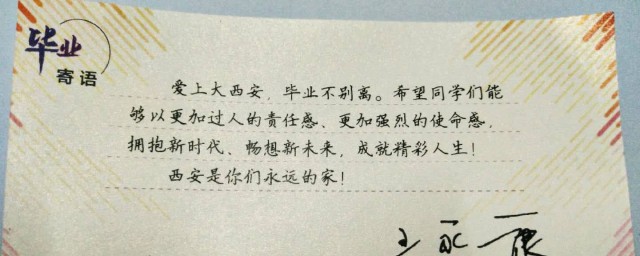 毕业
寄语
爱上大西安，毕业不别离。希望同学们能
够以更加过人的责任感、更加强烈的使命感，
拥抱新时代、畅想新未来，成就精彩人生！
西安是你们永远的家！
王永康